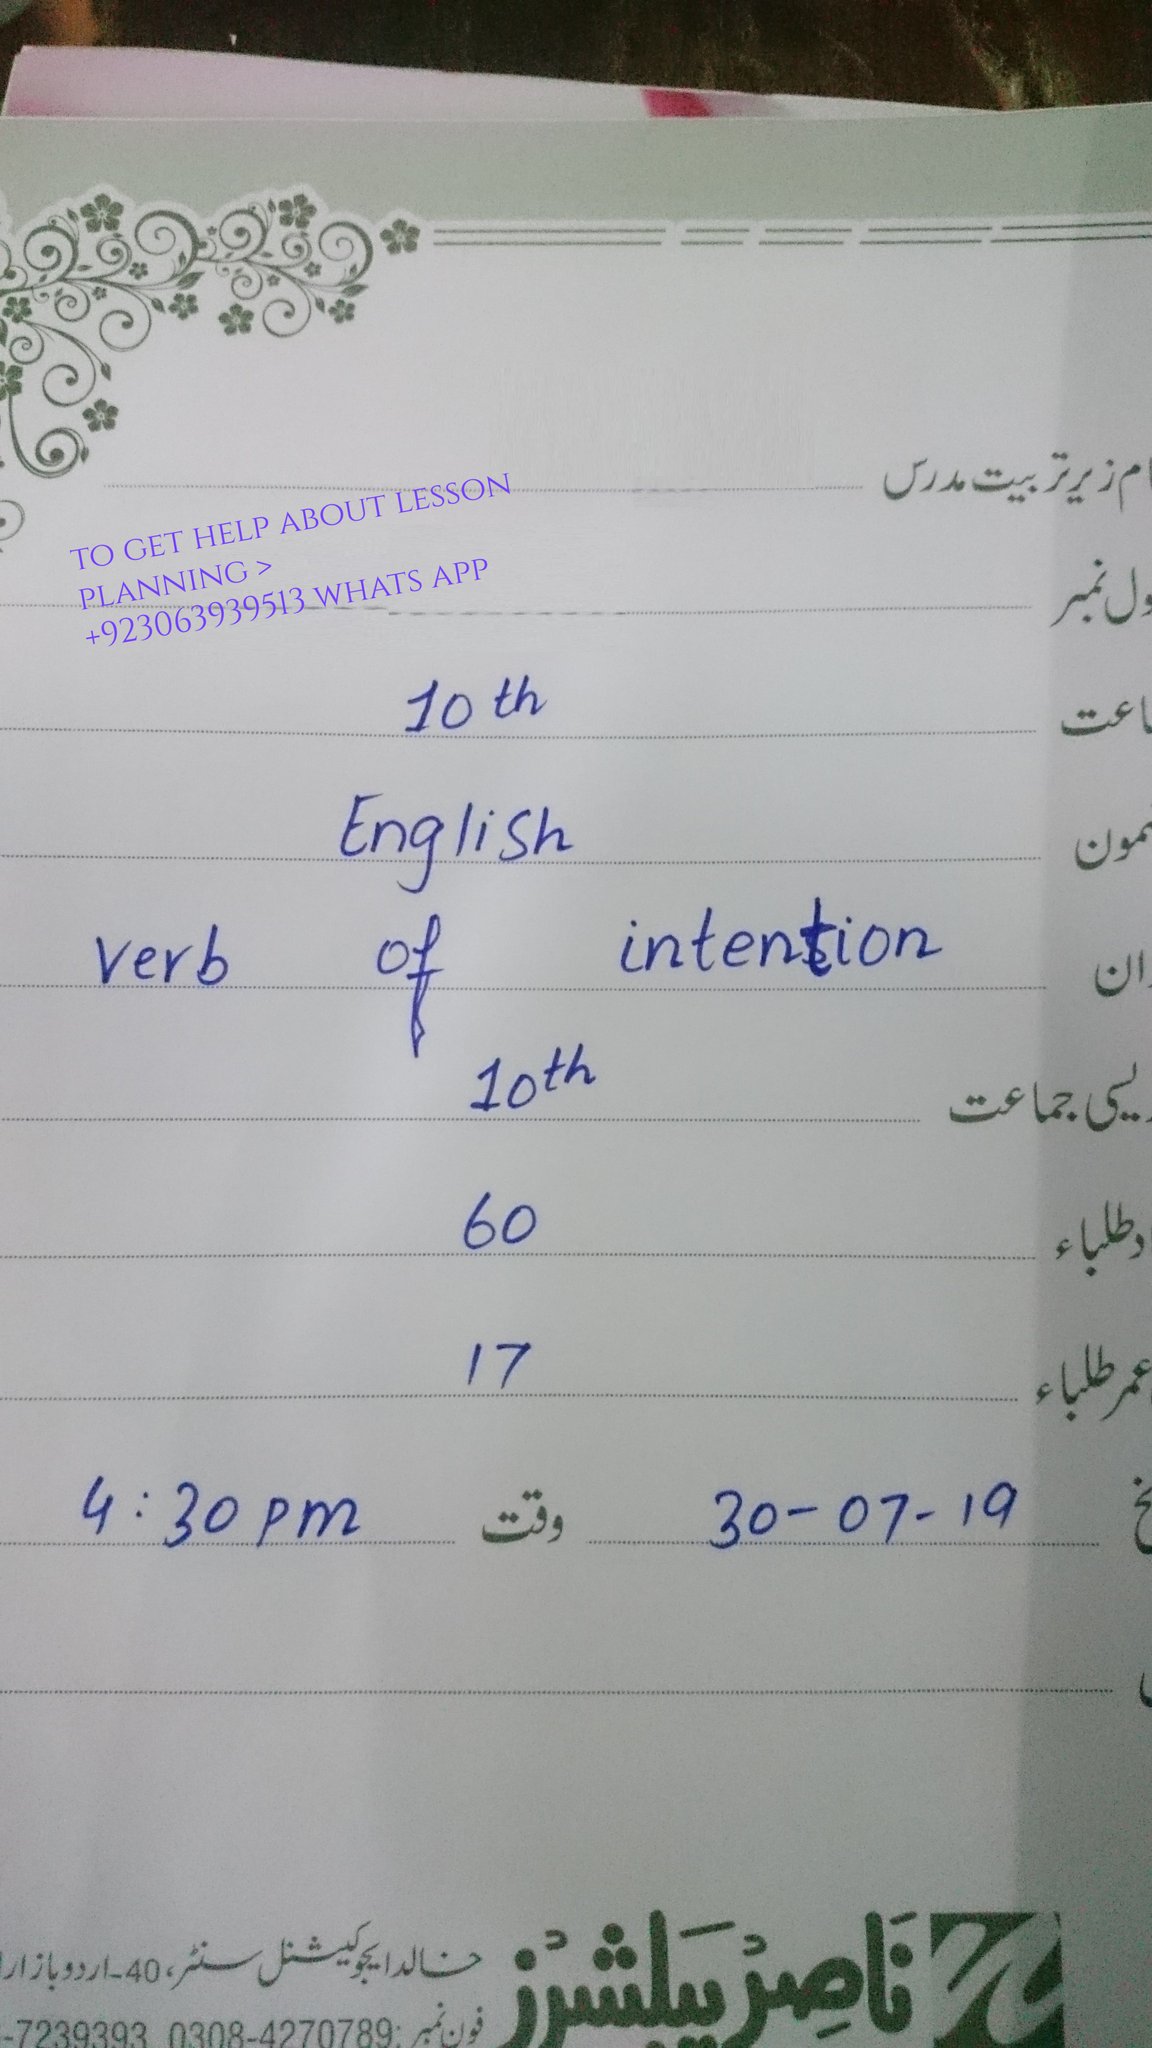 زیر تربیت مدرس
TO GET HELP ABOUT LESSON
PLANNING >
+923063939513 WHATS APP
نمبر
10th
English
verb of intention
جماعت 10th
طلباء 60
عمر طلباء 17
30-07-19 وقت 4:30 pm
ناصر پبلشرز
خالد ایجوکیشنل سنٹر، 40-اردو بازار
فون نمبر: 0308-4270789 -7239393